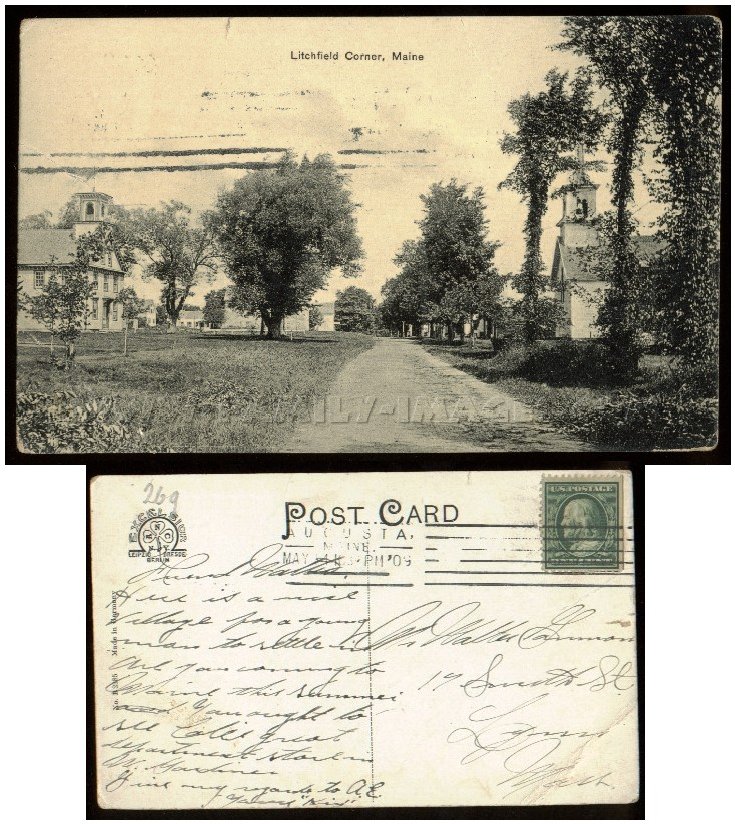 Litchfield Corner, Maine
FAMILY-IMAGES
269
POST CARD
EXCELSIOR
LEIPZIG DRESDEN
BERLIN
AUGUSTA,
MAINE.
MAY PM '09
U.S. POSTAGE
No. Made in Germany
Friend Walter.
Here is a nice
village for a young
man to settle in
Are you coming to
Maine this summer
You ought to
see great
department store in
W. Gardiner
Give my regards to A.E.
Yours "Kid"
Mr Walter
17 Smith St
Lynn
Mass.